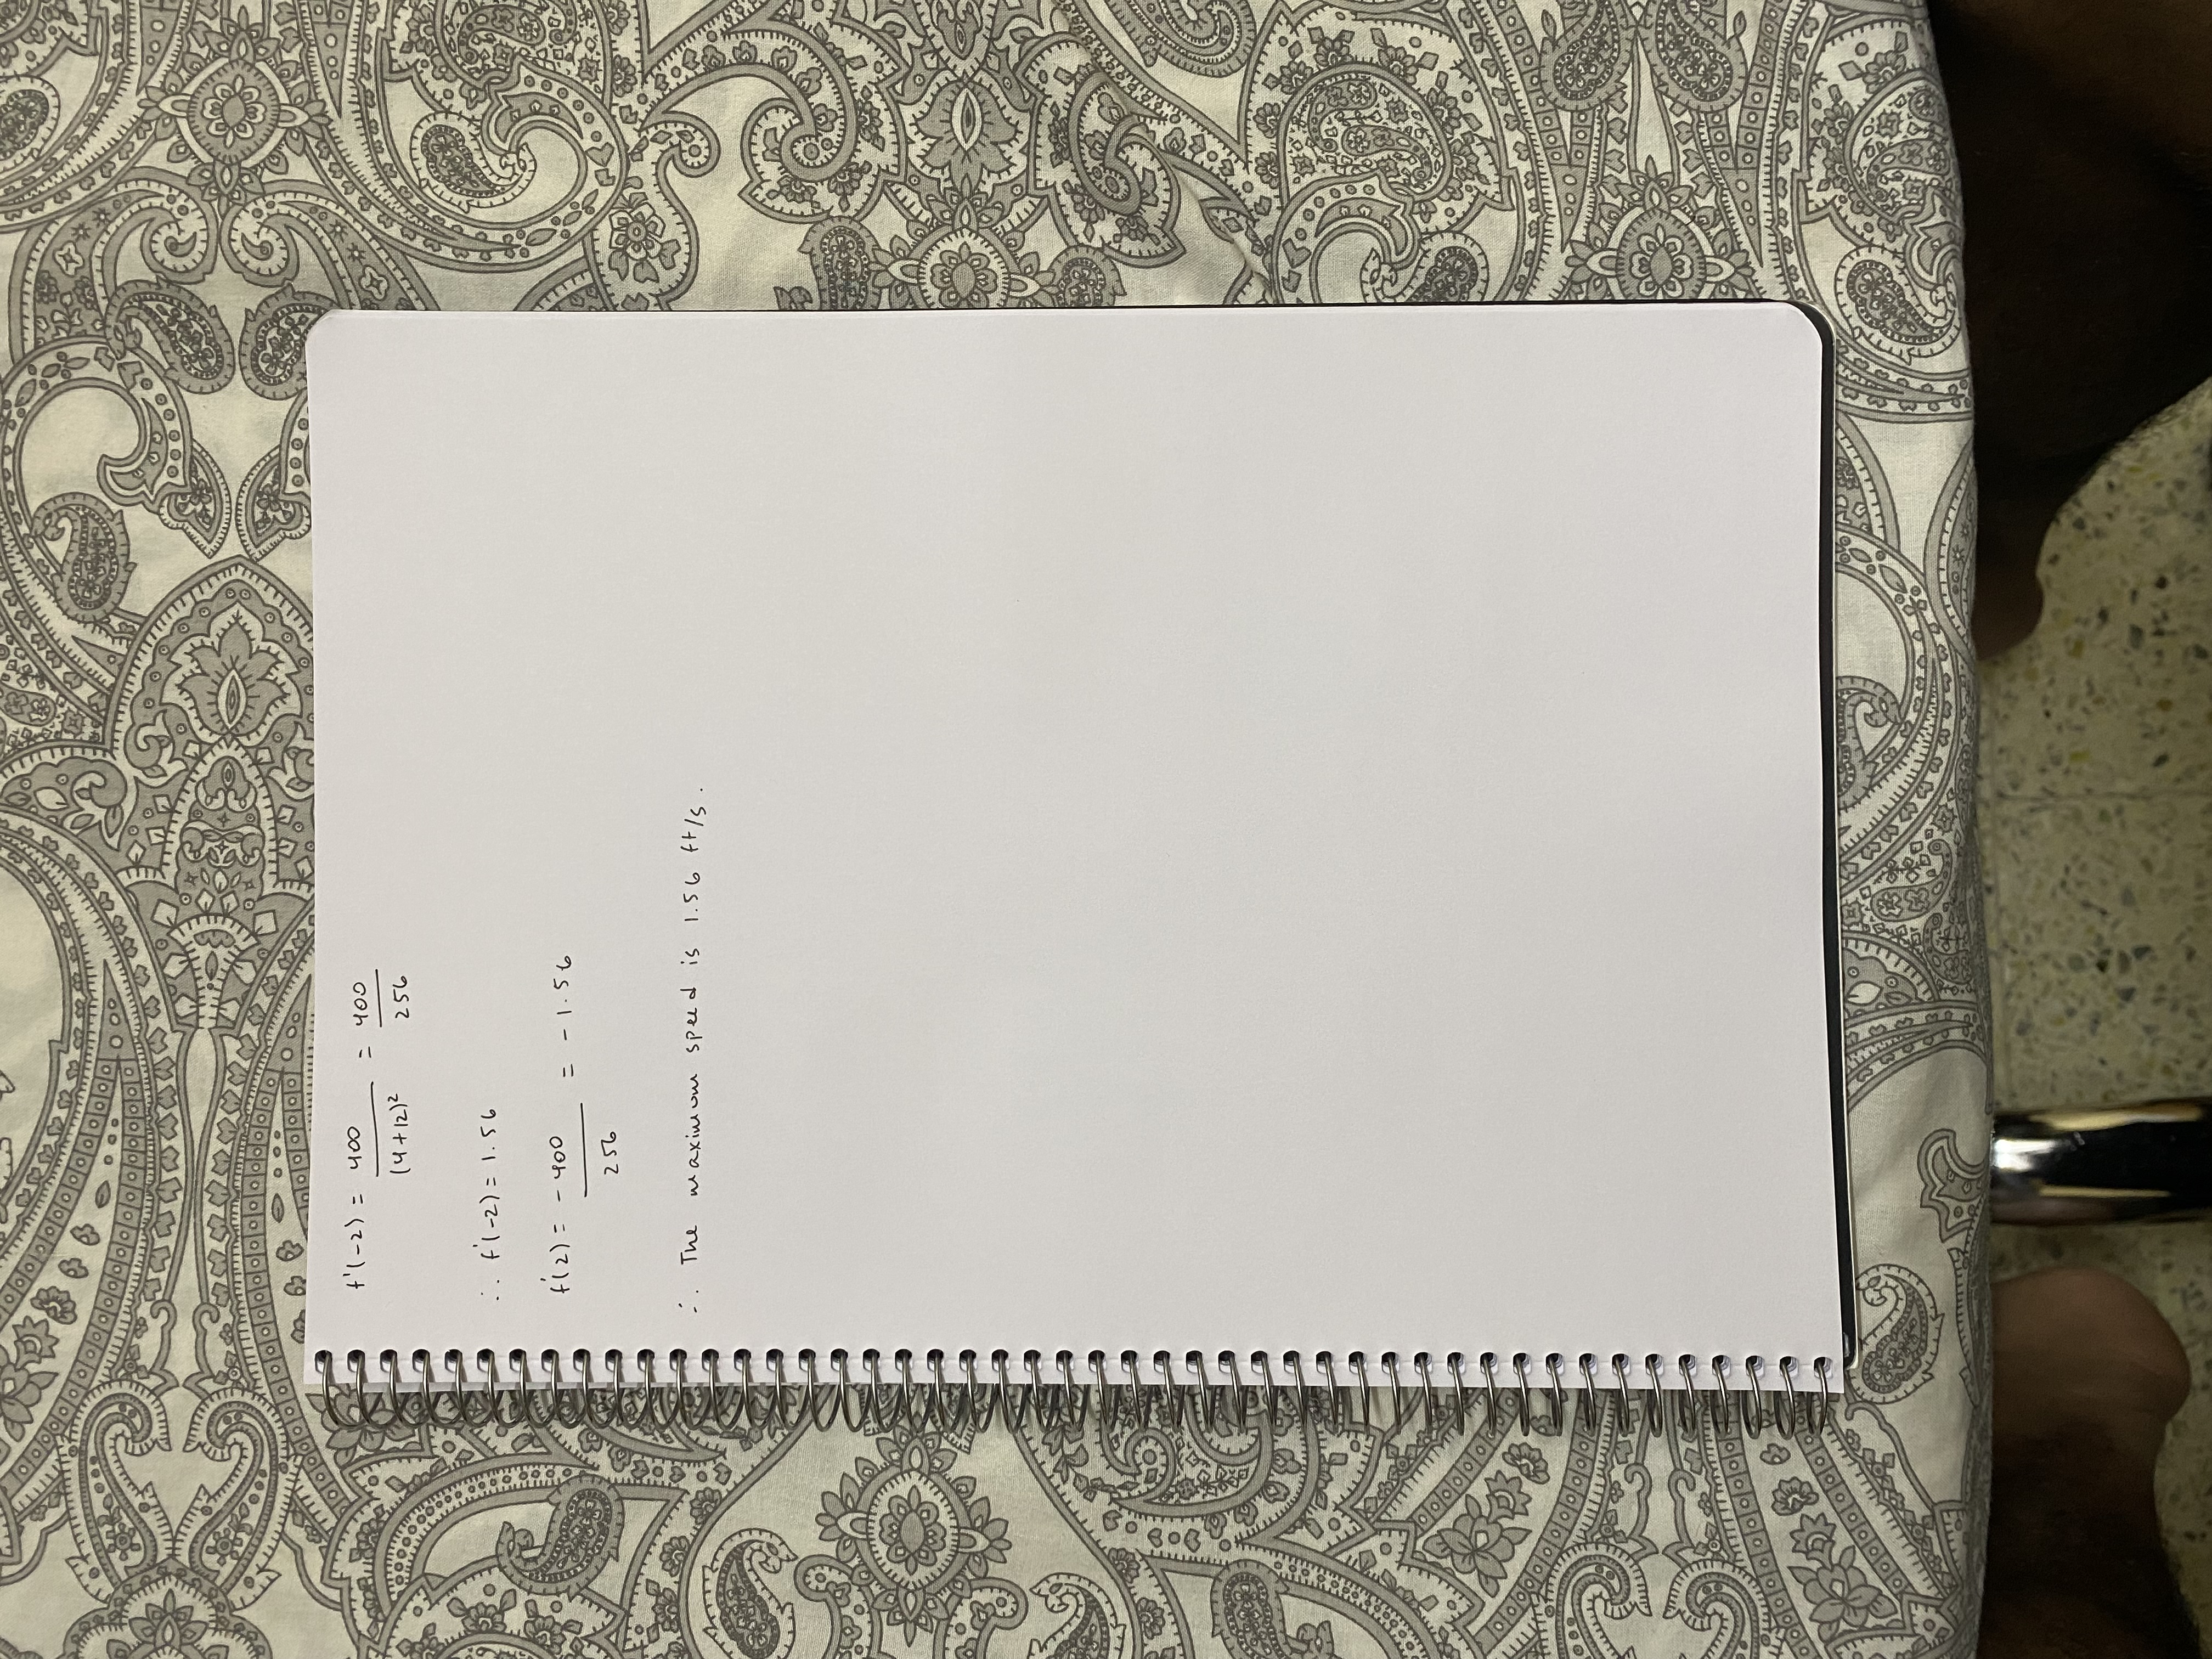 f'(-2) = 400/(4+12)² = 400/256
∴ f'(-2) = 1.56
f'(2) = -400/256 = -1.56
∴ The maximum speed is 1.56 ft/s.